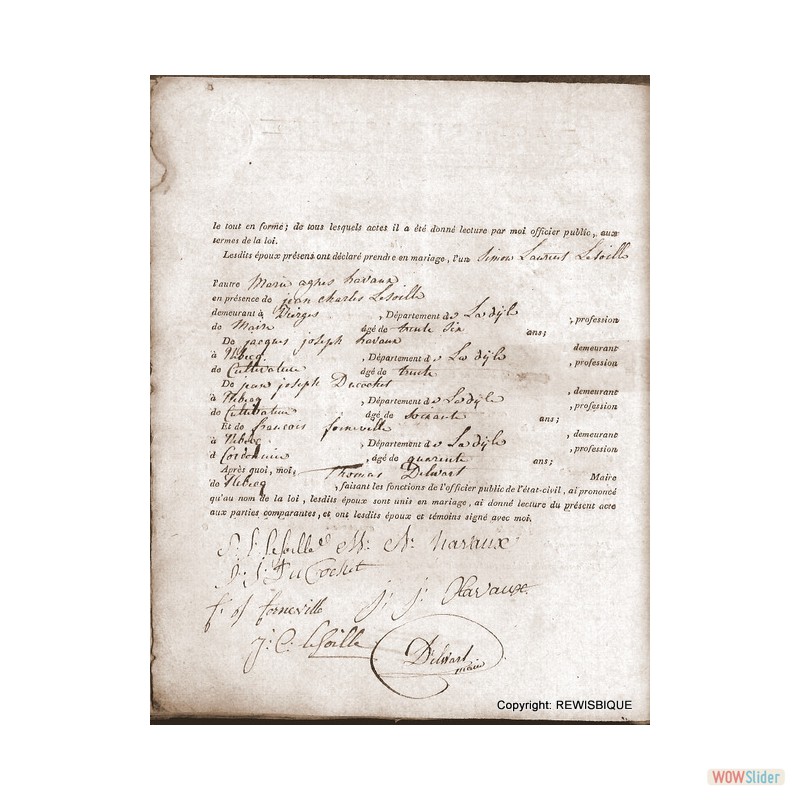 le tout en forme; de tous lesquels actes il a été donné lecture par moi officier public, aux
termes de la loi.
Lesdits époux présens ont déclaré prendre en mariage, l'un Simon Laurent Lesoille
l'autre Marie agnes havaux
en présence de jean Charles Lesoille
demeurant à Dierges , Département de La dÿle , profession
de Maire âgé de trente six ans;
De jacques joseph havaux demeurant
à Itebecq , Département de La dÿle , profession
de Cultivateur âgé de trente
De jean joseph Ducochet , demeurant
à Itebecq , Département de La dÿle , profession
de Cultivateur âgé de soixante ans;
Et de francois forneville , demeurant
à Itebecq , Département de La dÿle , profession
d Cordonnier , âgé de quarente ans;
Après quoi, moi, Thomas Delwart Maire
de Itebecq , faisant les fonctions de l'officier public de l'état-civil, ai prononcé
qu'au nom de la loi, lesdits époux sont unis en mariage, ai donné lecture du présent acte
aux parties comparantes, et ont lesdits époux et témoins signé avec moi.
S: L: Lesoille M: A: havaux
J: J: DuCochet
forneville J: J: Havaux
J: C: leSoille Delwart
maire
Copyright: REWISBIQUE
WOWSlider